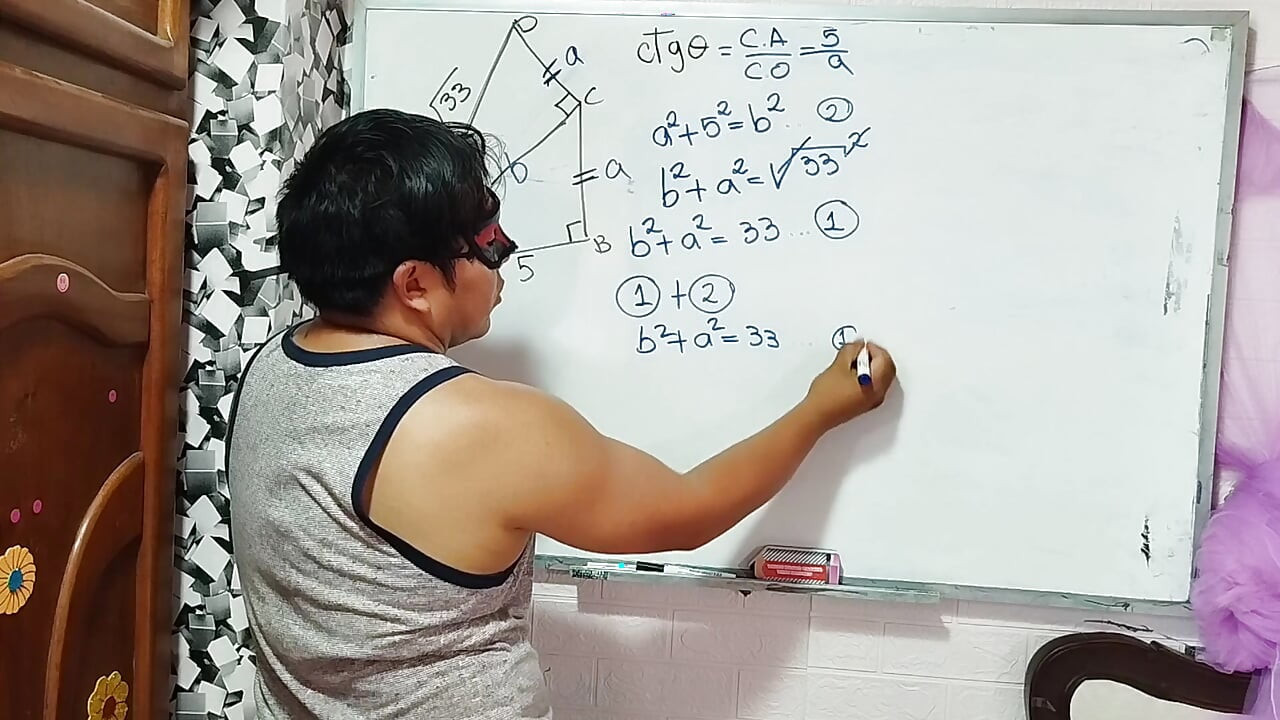 D
a
√33
C
b
a
B
5
ctgθ = C.A/CO = 5/a
a² + 5² = b² .. ②
b² + a² = √33²
b² + a² = 33 ... ①
① + ②
b² + a² = 33 .. ①